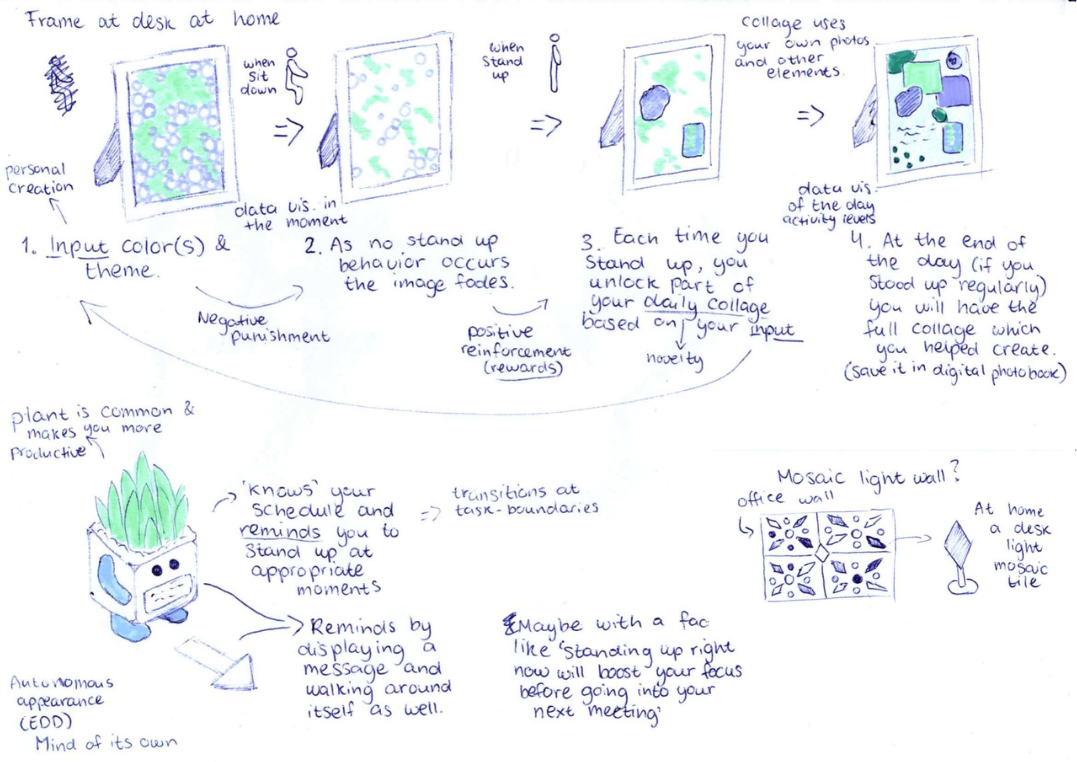 Frame at desk at home
when
sit
down
when
stand
up
collage uses
your own photos
and other
elements.
personal
creation
data vis. in
the moment
data vis.
of the day
activity levels
1. Input color(s) &
theme.
2. As no stand up
behavior occurs
the image fades.
3. Each time you
stand up, you
unlock part of
your daily collage
based on your input
4. At the end of
the day (if you
stood up regularly)
you will have the
full collage which
you helped create.
(save it in digital photobook)
Negative
punishment
positive
reinforcement
(rewards)
novelty
plant is common &
makes you more
productive
'Knows' your
schedule and
reminds you to
stand up at
appropriate
moments
transitions at
task-boundaries
Reminds by
displaying a
message and
walking around
itself as well.
Maybe with a fac
like 'Standing up right
now will boost your focus
before going into your
next meeting'
Autonomous
appearance
(EDD)
Mind of its own
Mosaic light wall?
office wall
At home
a desk
light
mosaic
tile